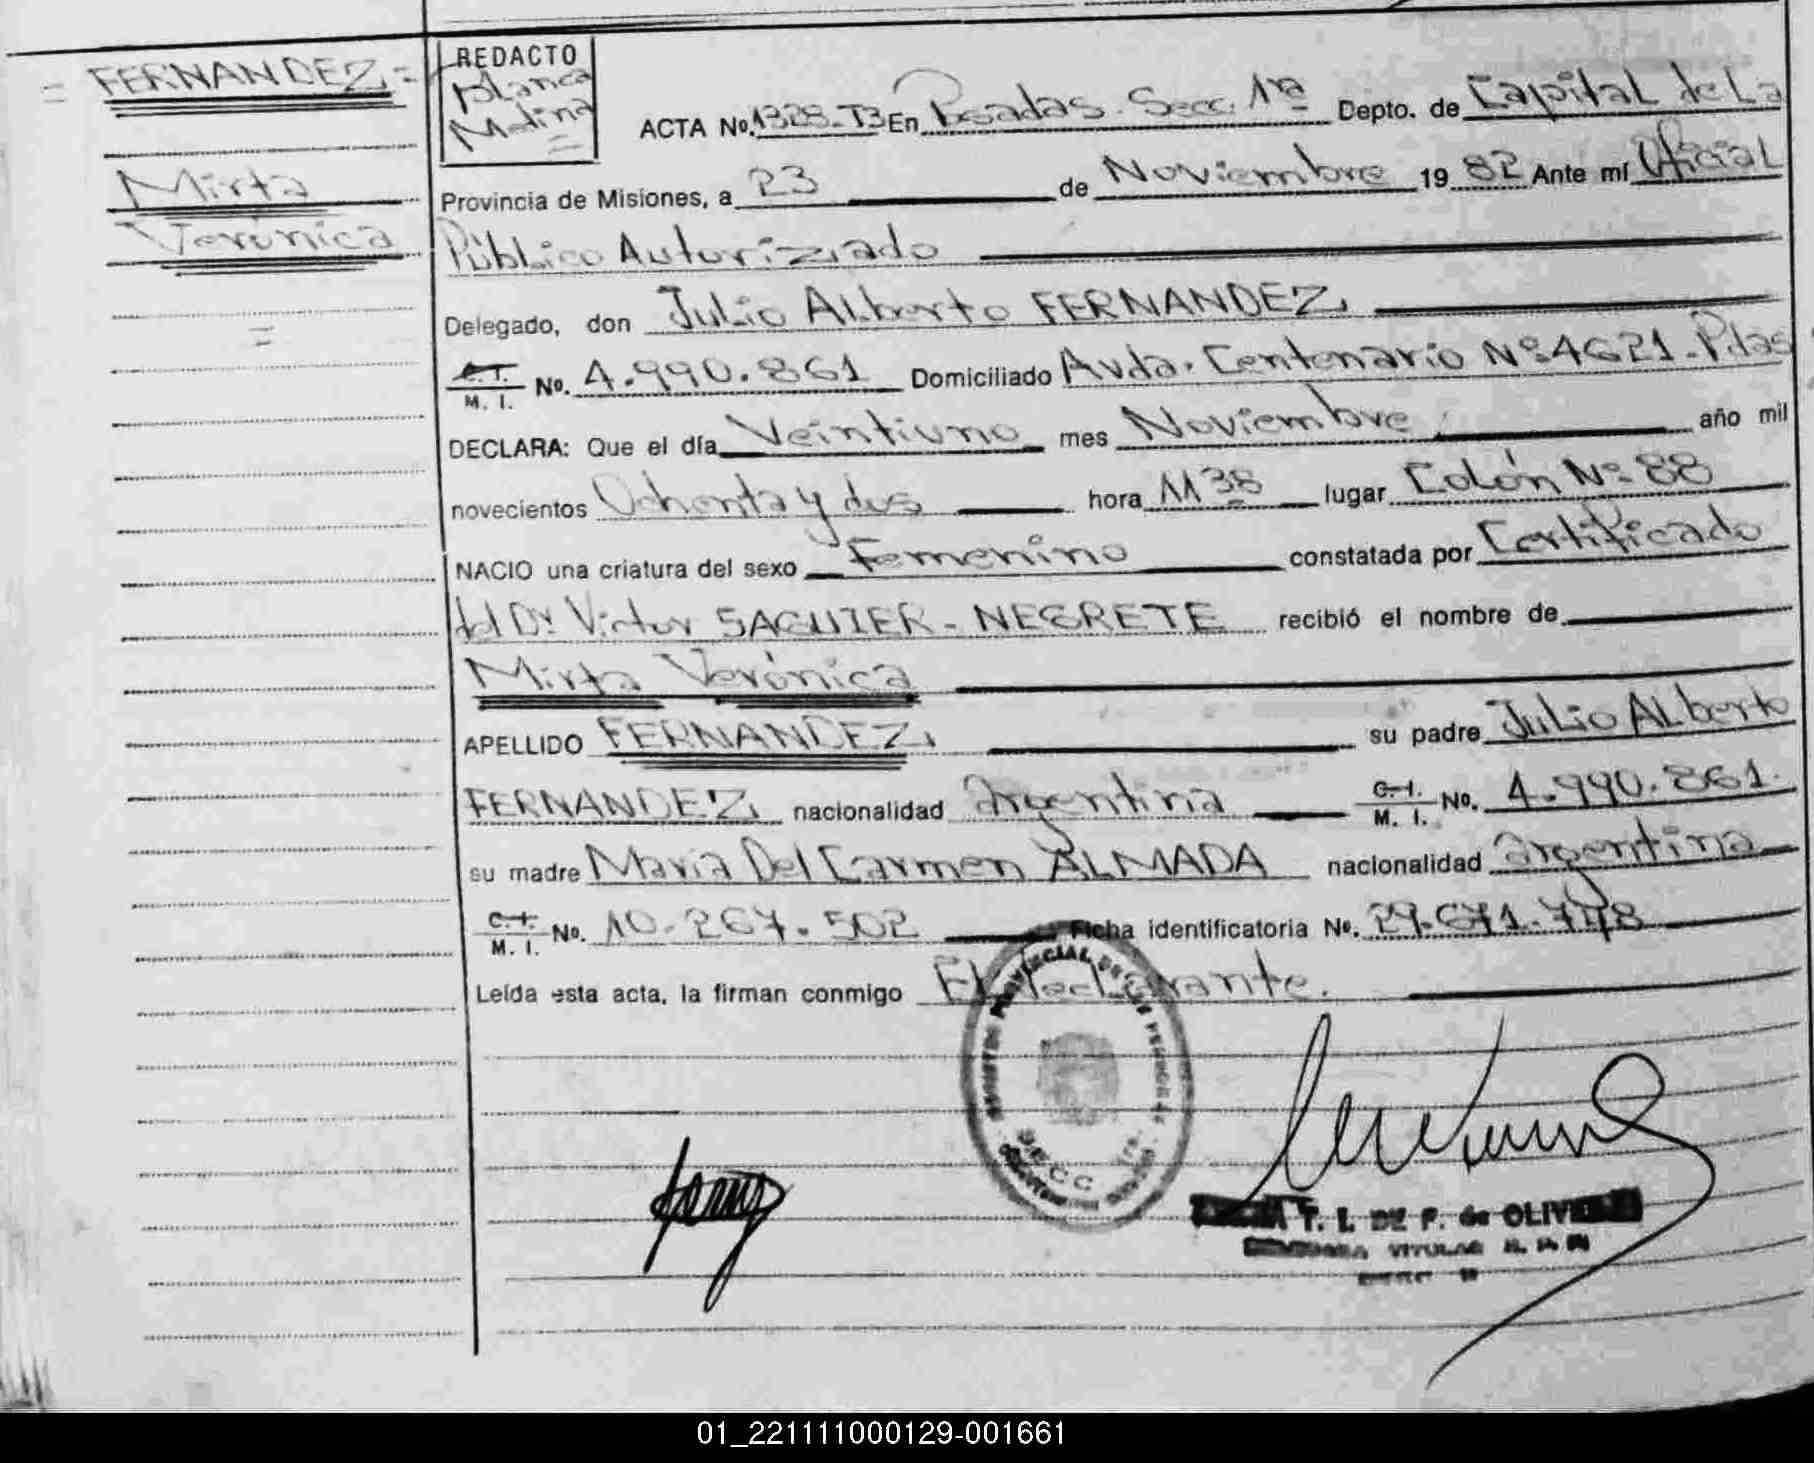 = FERNANDEZ =
Mirta
Verónica
=
REDACTO
Blanca
Medina
=
ACTA No. 1328-T3 En Posadas. Secc. 1ra Depto. de Capital de La
Provincia de Misiones, a 23 de Noviembre 19 82 Ante mí Oficial
Público Autorizado
Delegado, don Julio Alberto FERNANDEZ,
C. I. M. I. No. 4.990.861 Domiciliado Avda. Centenario Nº 4621 - Pdas
DECLARA: Que el día Veintiuno mes Noviembre año mil
novecientos Ochenta y dos hora 11 38 lugar Colón Nº 88
NACIO una criatura del sexo Femenino constatada por Certificado
del Dr Victor SAGUIER - NEGRETE recibió el nombre de
Mirta Verónica
APELLIDO FERNANDEZ, su padre Julio Alberto
FERNANDEZ, nacionalidad argentina C. I. M. I. No. 4.990.861.
su madre María Del Carmen ALMADA nacionalidad argentina
C. I. M. I. No. 10.267.502 Ficha identificatoria No. 29.671.748
Leída esta acta, la firman conmigo El declarante.
REGISTRO PROVINCIAL DE LAS PERSONAS
SECC 1ra.
T. I. DE F. de OLIVERA
TITULAR R. P. P.
01_221111000129-001661